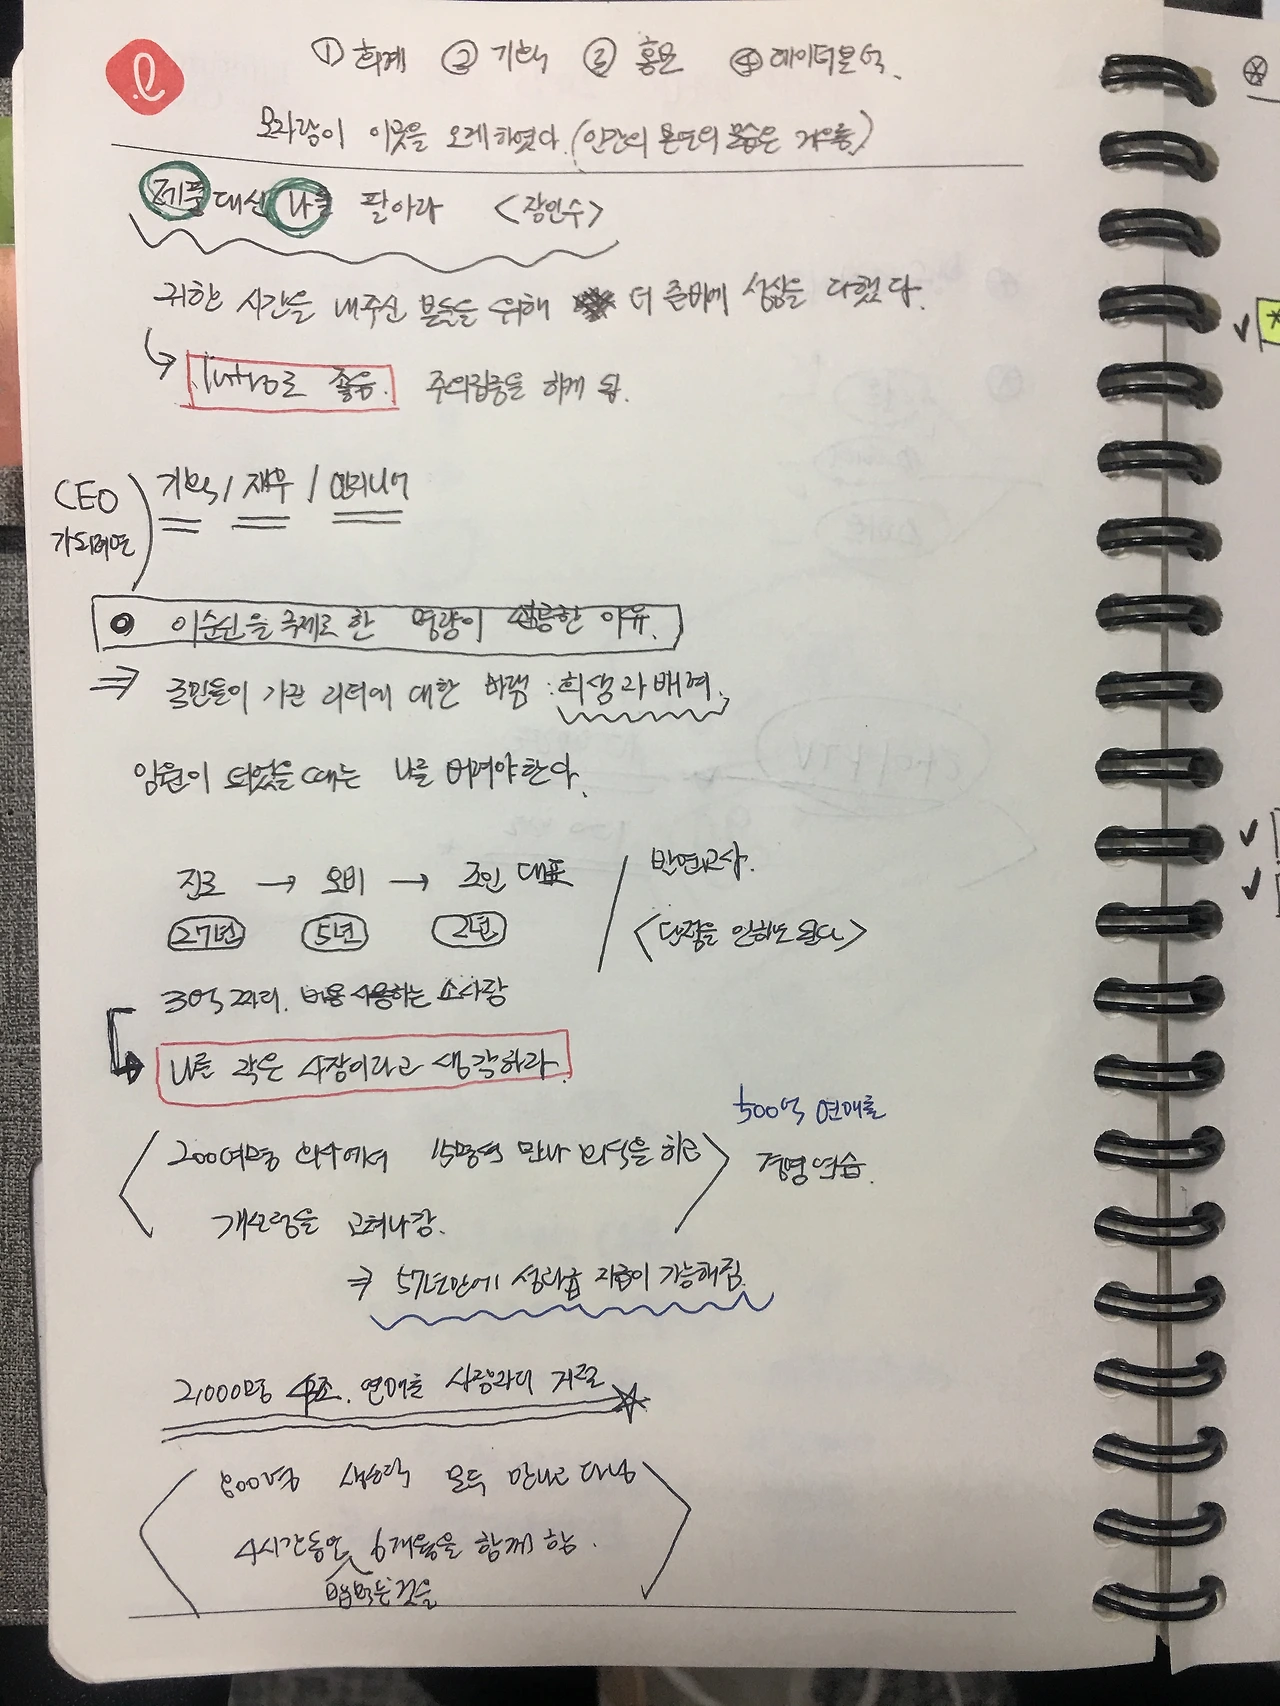 ① 회계 ② 기획 ③ 홍보 ④ 데이터분석.
모자람이 이곳을 오게하였다. (인간의 본연의 모습은 게으름)
제품 대신 나를 팔아라 <장인수>
귀한 시간을 내주신 분들을 위해 더 준비에 성심을 다했다.
Intro로 좋음. 주의집중을 하게 됨.
CEO 가 되려면
기획 / 재무 / 엔지니어
이순신을 주제로 한 명량이 성공한 이유.
⇒ 국민들이 가진 리더에 대한 바램 : 희생과 배려.
임원이 되었을 때는 나를 버려야한다.
진로 → 오비 → 조인 대표 / 반면교사.
27년 5년 2년 <단점을 안해도 된다>
30억 짜리. 비용 사용하는 소사장
나를 작은 사장이라고 생각하라.
200여명 회사에서 15명씩 만나 회식을 하고
500억 연매출
경영 연습.
개선점을 고쳐나감.
⇒ 57년만에 성과급 지급이 가능해짐.
2,000명 4조. 연매출 사장과의 기로
800명 생산직 모두 만나고 다님
4시간동안 6개월을 함께 함.